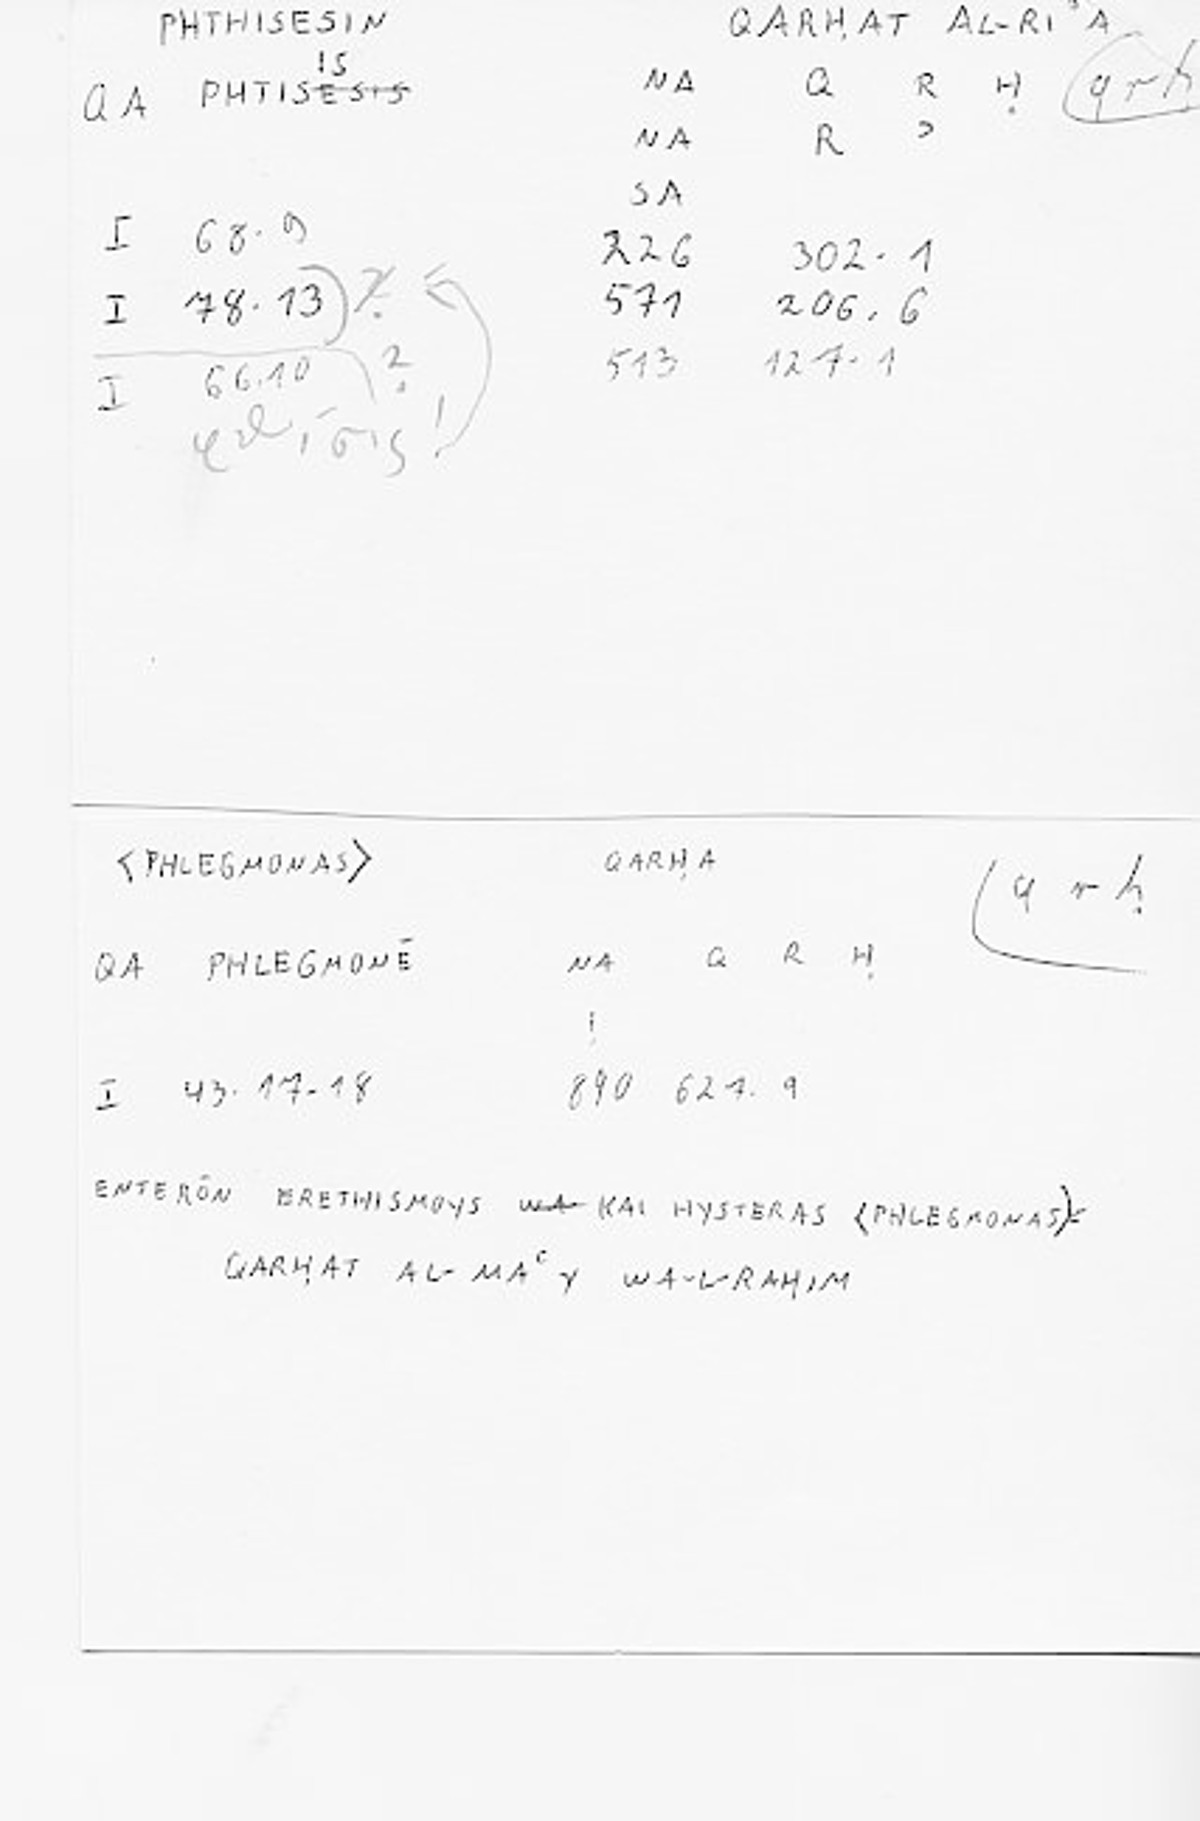 PHTHISESIN QARḤAT AL-RIʾA
IS
QA PHTISESIS NA Q R Ḥ qrḥ
NA R ʾ
SA
I 68.9 226 302.1
I 78.13 ? 571 206.6
I 66.10 ? 513 127.1
φθίσις!
<PHLEGMONAS> QARḤA q r ḥ
QA PHLEGMONĒ NA Q R Ḥ
!
I 43.17-18 890 627.9
ENTERŌN ERETHISMOYS WA KAI HYSTERAS <PHLEGMONAS>=
QARḤAT AL-MAʿY WA-L-RAḤIM